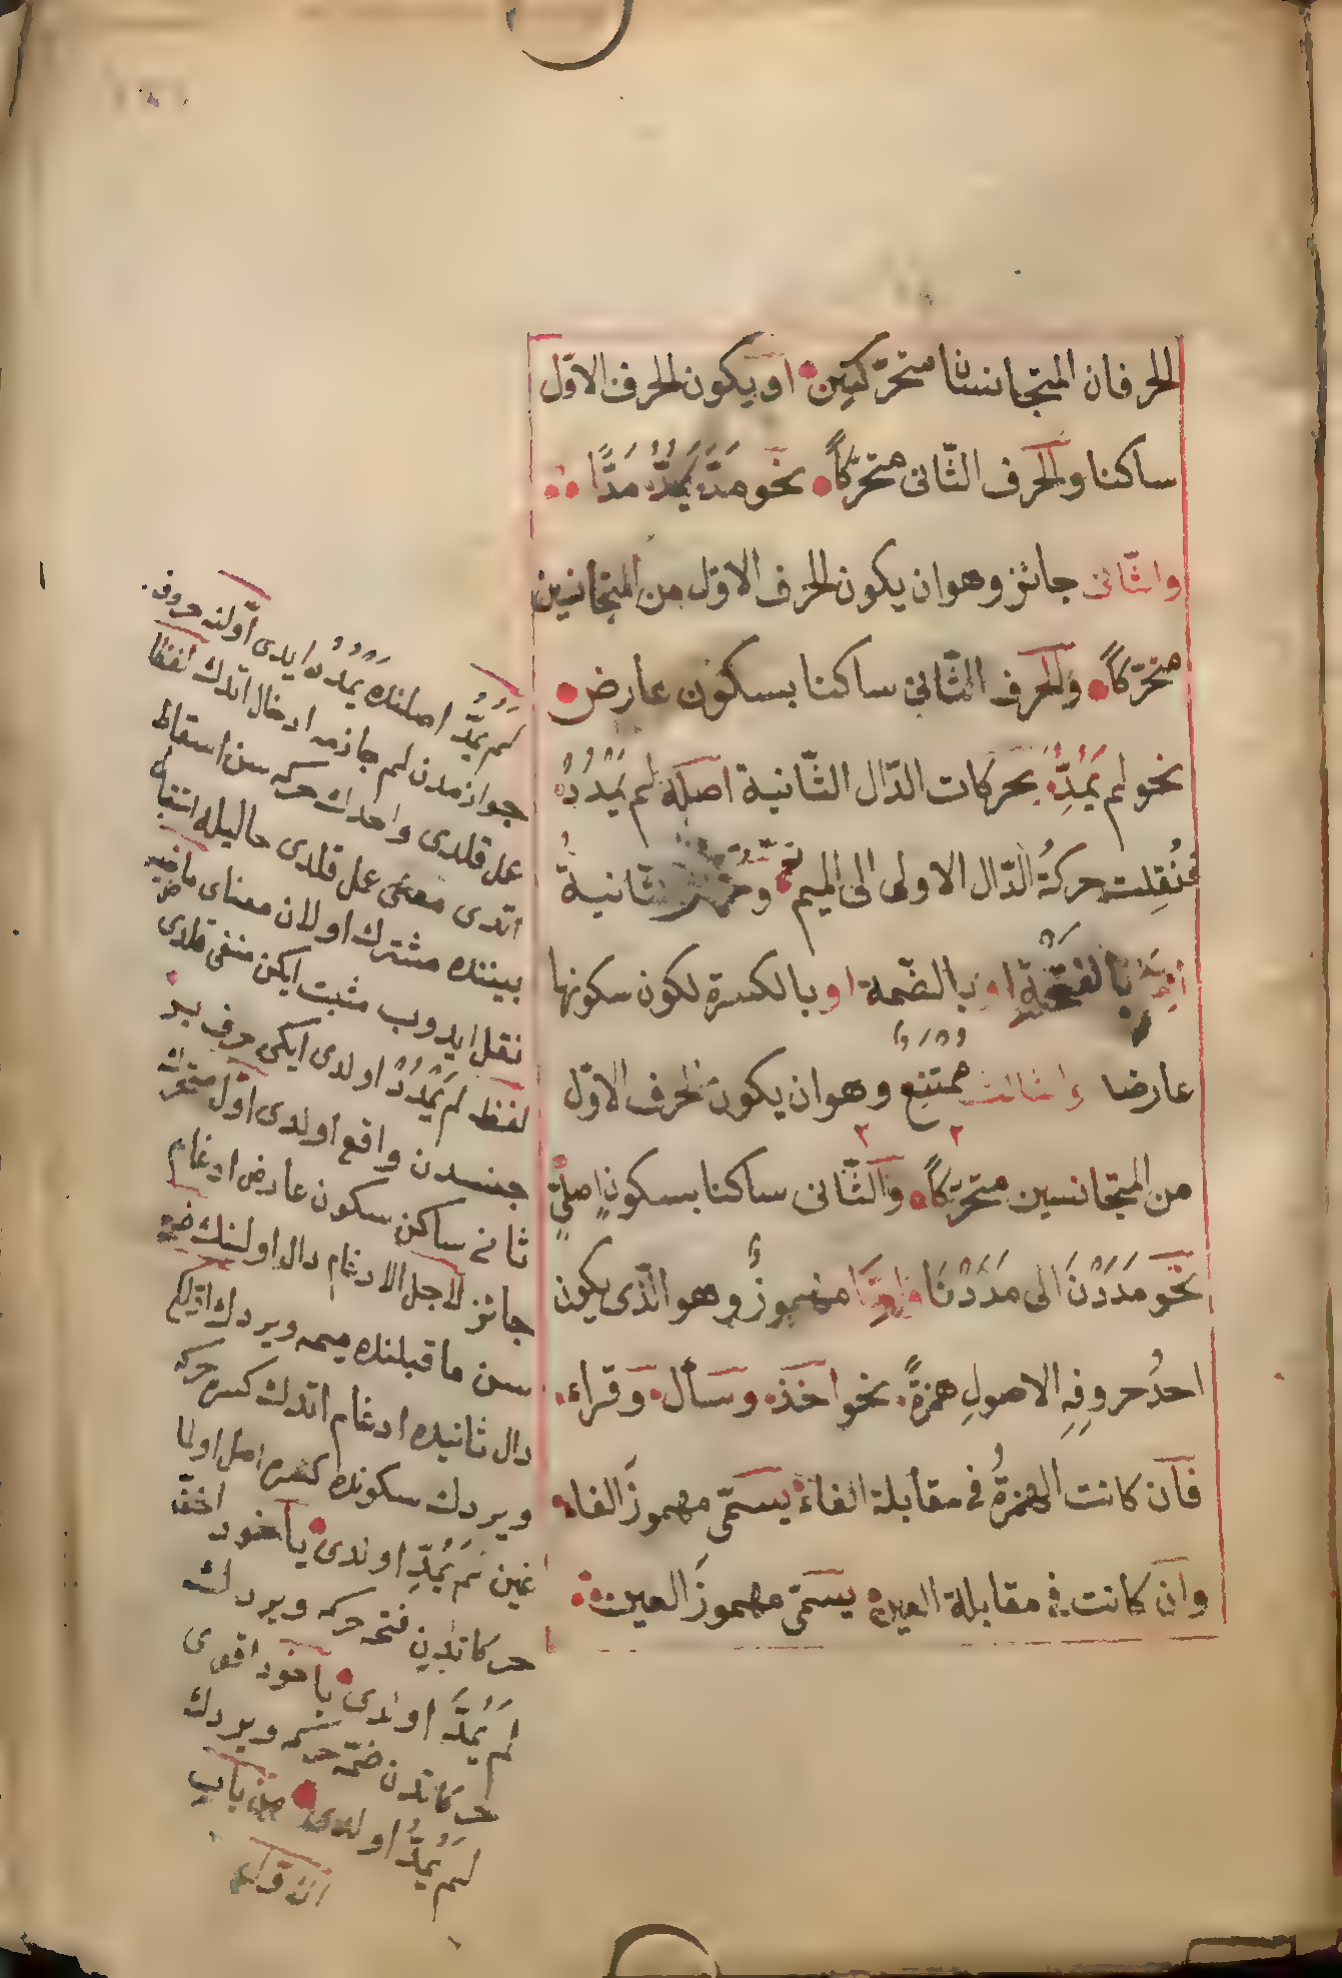 الحرفان المتجانسان متحرّكين او يكون الحرف الاوّل
ساكنا والحرف الثّانى متحرّكاً نحو مَدَّ يَمُدُّ مَدًّا
والثّانى جائز وهو ان يكون الحرف الاوّل من المتجانسين
متحرّكاً والحرف الثّانى ساكنا بسكون عارض
نحو لم يَمُدِّ بحركات الدّال الثّانية اصله لم يَمْدُدْ
فنُقِلت حركةُ الدّال الاولى الى الميم ثانيةُ
بالفتحة او بالضّمة او بالكسرة لكون سكونها
عارضا والثالث ممتنع وهو ان يكون الحرف الاوّل
من المتجانسين متحرّكاً والثّانى ساكنا بسكونٍ اصلىٍّ
نحو مَدَدْنَ الى مَدَدْنَا وامّا مهموزٌ وهو الّذى يكون
احدُ حروفِهِ الاصولِ همزةً نحو اخذ وسأل وقراء
فان كانت الهمزةُ فى مقابلة الفاء يسمّى مهموزَ الفاء
وان كانت فى مقابلة العين يسمّى مهموزَ العين
لَمْ يَمُدَّ اصلنده يَمْدُدُ ايدى اوّلنه حروف
جوازمدن لم جازمه ادخال اتدك لفظا
عمل قلدى واحدك حركه سن اسقاط
اتدى معنى عمل قلدى حاليله استقبال
بيننده مشترك اولان معناى ماضيه
نقل ايدوب مثبت ايكن منفى قلدى
لفظ لم يَمْدُدْ اولدى ايكى حرف بر
جنسدن واقع اولدى اوّل متحرك
ثانى ساكن سكون عارض ادغام
جائز لاجل الادغام دال اولنك
سن ما قبلنده ميمه ويردك
دال ثانيده ادغام اتدك كسره حركه
ويردك سكونده كسره اصل اولا
لم يَمُدِّ اولدى ياخود اخفّ
حركاتدن فتحه حركه ويردك
لم يَمُدَّ اولدى ياخود اقوى
حركاتدن ضمّه حركه ويردك
لم يَمُدُّ اولدى من باب
الاوّل